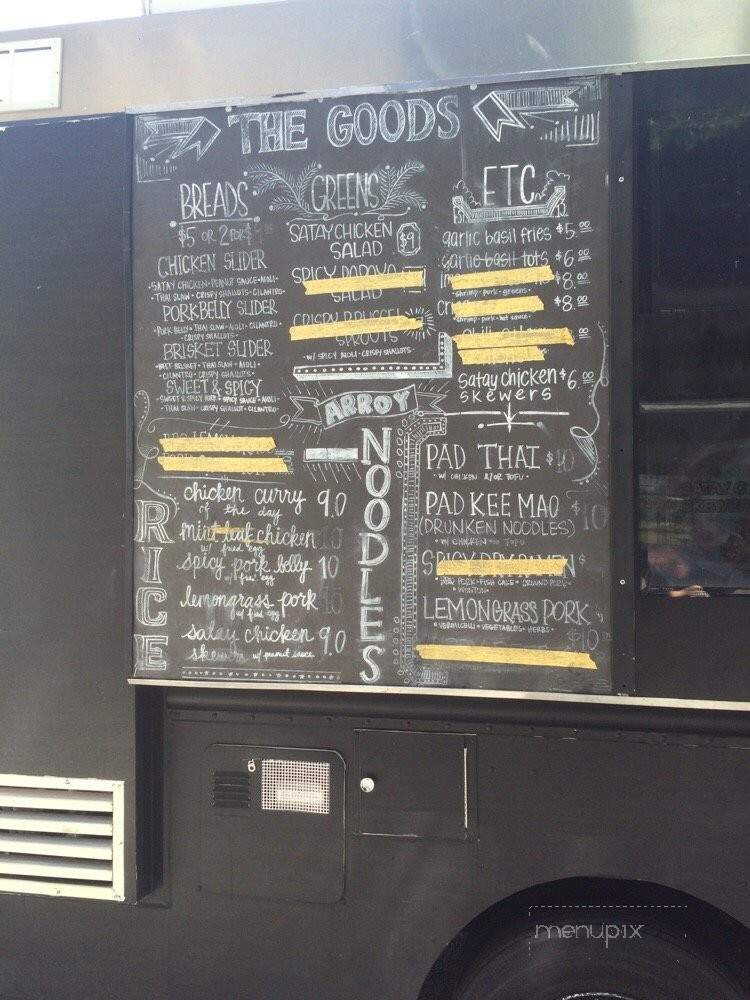 THE GOODS
BREADS
$5 OR 2 FOR $
CHICKEN SLIDER
SATAY CHICKEN • PEANUT SAUCE • AIOLI •
THAI SLAW • CRISPY SHALLOTS • CILANTRO
PORKBELLY SLIDER
PORK BELLY • THAI SLAW • AIOLI • CILANTRO •
CRISPY SHALLOTS
BRISKET SLIDER
BEEF BRISKET • THAI SLAW • AIOLI •
CILANTRO • CRISPY SHALLOTS
SWEET & SPICY
THAI SLAW • CRISPY SHALLOT • CILANTRO
GREENS
SATAY CHICKEN
SALAD $9
SPICY PAPAYA
SALAD
CRISPY BRUSSEL
SPROUTS
W/ SPICY AIOLI • CRISPY SHALLOTS
ETC
garlic basil fries $5.00
garlic basil tots $6.00
$8.00
• shrimp • pork • greens •
$8.00
shrimp • pork • hot sauce •
Satay chicken $6.00
skewers
ARROY
RICE
chicken curry 9.0
of the day
mint leaf chicken 10
w/ fried egg
spicy pork belly 10
fried egg
lemongrass pork 10
w/ fried egg
satay chicken 9.0
skewers w/ peanut sauce
NOODLES
PAD THAI $10
• W/ CHICKEN &/OR TOFU •
PAD KEE MAO $10
(DRUNKEN NOODLES)
• W/ CHICKEN TOFU
SPICY DRY RAMEN $
BBQ PORK • FISH CAKE • GROUND PORK •
WONTON
LEMONGRASS PORK
• VERMICELLI • VEGETABLES • HERBS • $10
menupix